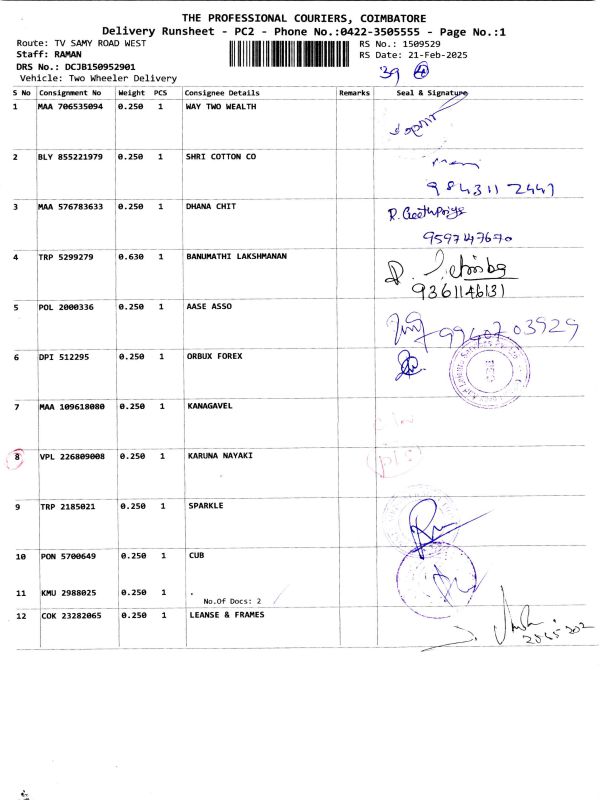 THE PROFESSIONAL COURIERS, COIMBATORE
Delivery Runsheet - PC2 - Phone No.:0422-3505555 - Page No.:1
Route: TV SAMY ROAD WEST RS No.: 1509529
Staff: RAMAN RS Date: 21-Feb-2025
DRS No.: DCJB150952901
Vehicle: Two Wheeler Delivery
39
S No Consignment No Weight PCS Consignee Details Remarks Seal & Signature
1 MAA 706535094 0.250 1 WAY TWO WEALTH
2 BLY 855221979 0.250 1 SHRI COTTON CO
9843112441
3 MAA 576783633 0.250 1 DHANA CHIT
9597747670
4 TRP 5299279 0.630 1 BANUMATHI LAKSHMANAN
9361146131
5 POL 2000336 0.250 1 AASE ASSO
9940703929
6 DPI 512295 0.250 1 ORBUX FOREX
7 MAA 109618080 0.250 1 KANAGAVEL
8 VPL 226809008 0.250 1 KARUNA NAYAKI
9 TRP 2185021 0.250 1 SPARKLE
10 PON 5700649 0.250 1 CUB
11 KMU 2988025 0.250 1 .
No.Of Docs: 2
12 COK 23282065 0.250 1 LEANSE & FRAMES